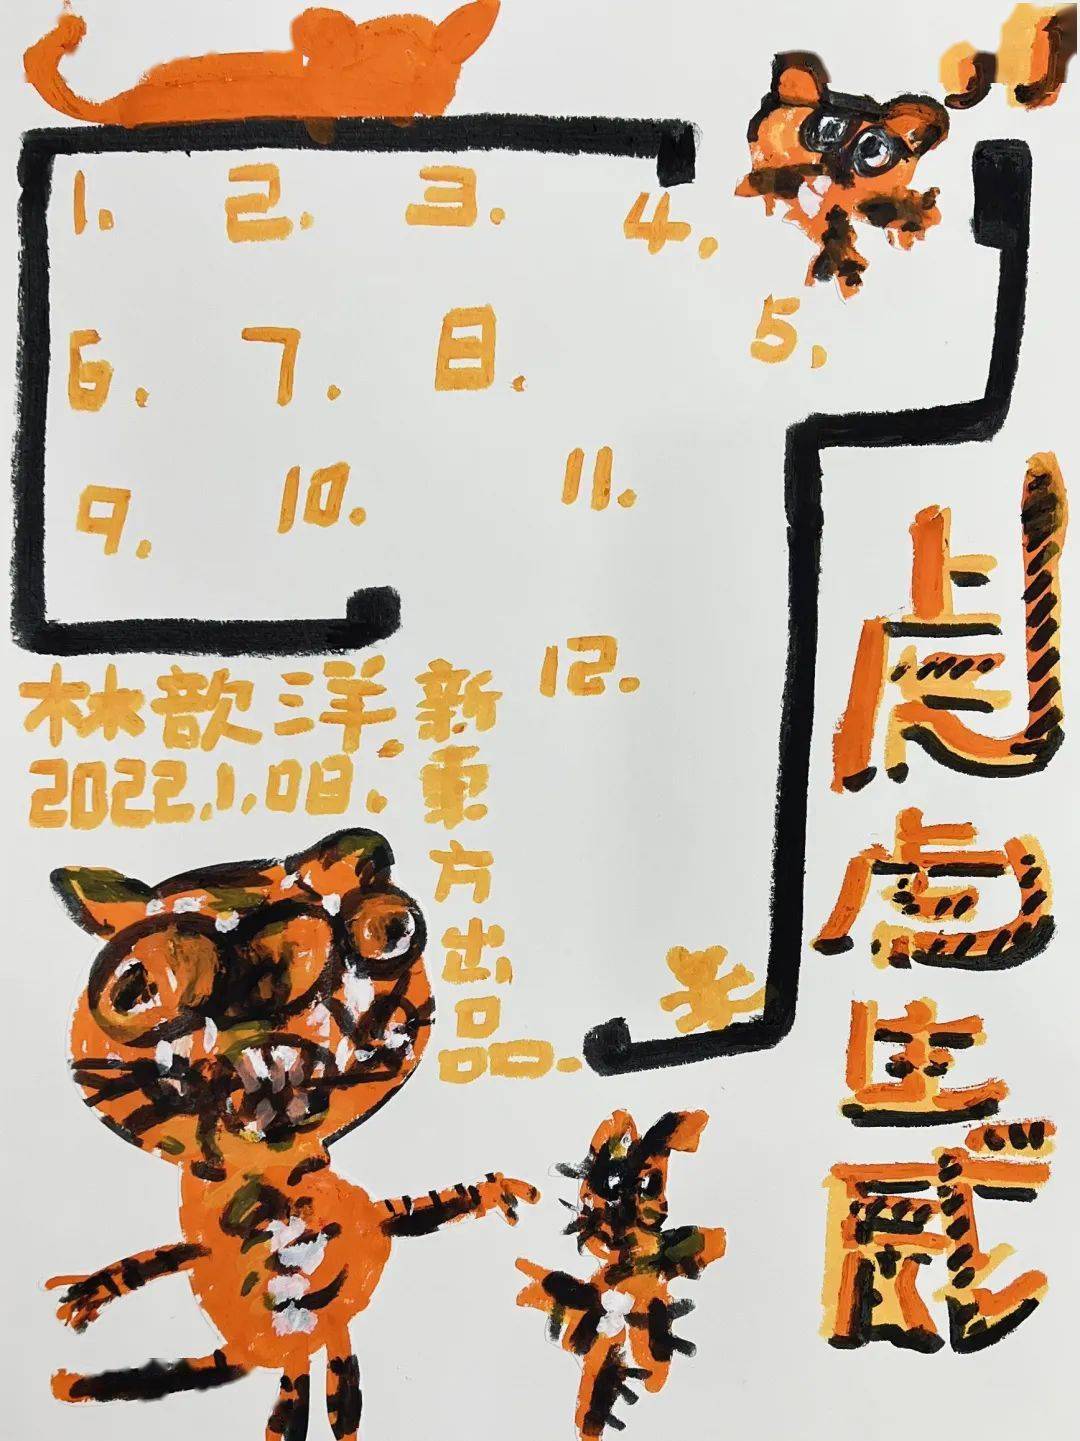 1. 2. 3. 4.
5.
6. 7. 8.
9. 10. 11.
12.
虎虎生威
林歆洋.
2022.1.08.
新重方出品.